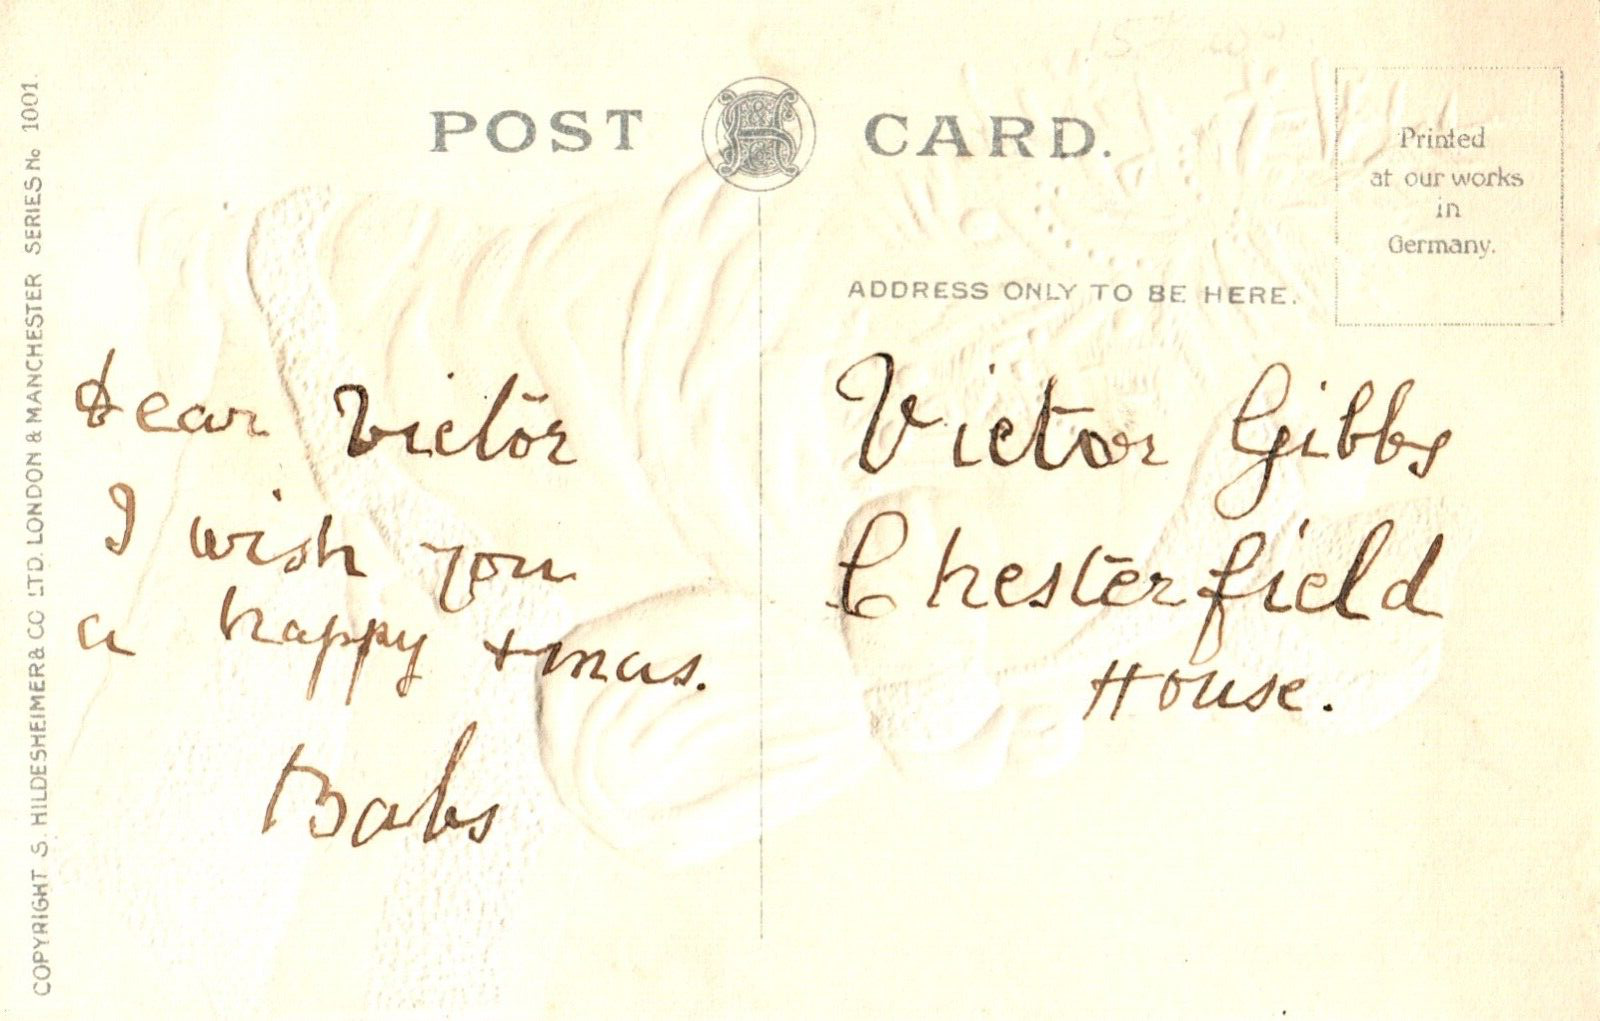 COPYRIGHT S. HILDESHEIMER & CO LTD. LONDON & MANCHESTER SERIES No 1001.
POST CARD.
Printed
at our works
in
Germany.
ADDRESS ONLY TO BE HERE.
Dear Victor
I wish you
a happy +mas.
Babs
Victor Gibbs
Chesterfield
House.